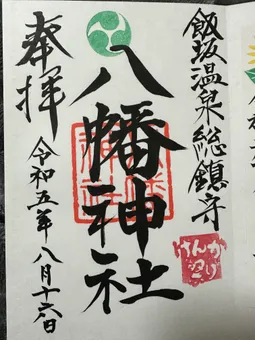 飯坂温泉総鎮守
八幡神社
奉拝
令和五年八月十六日
けんか